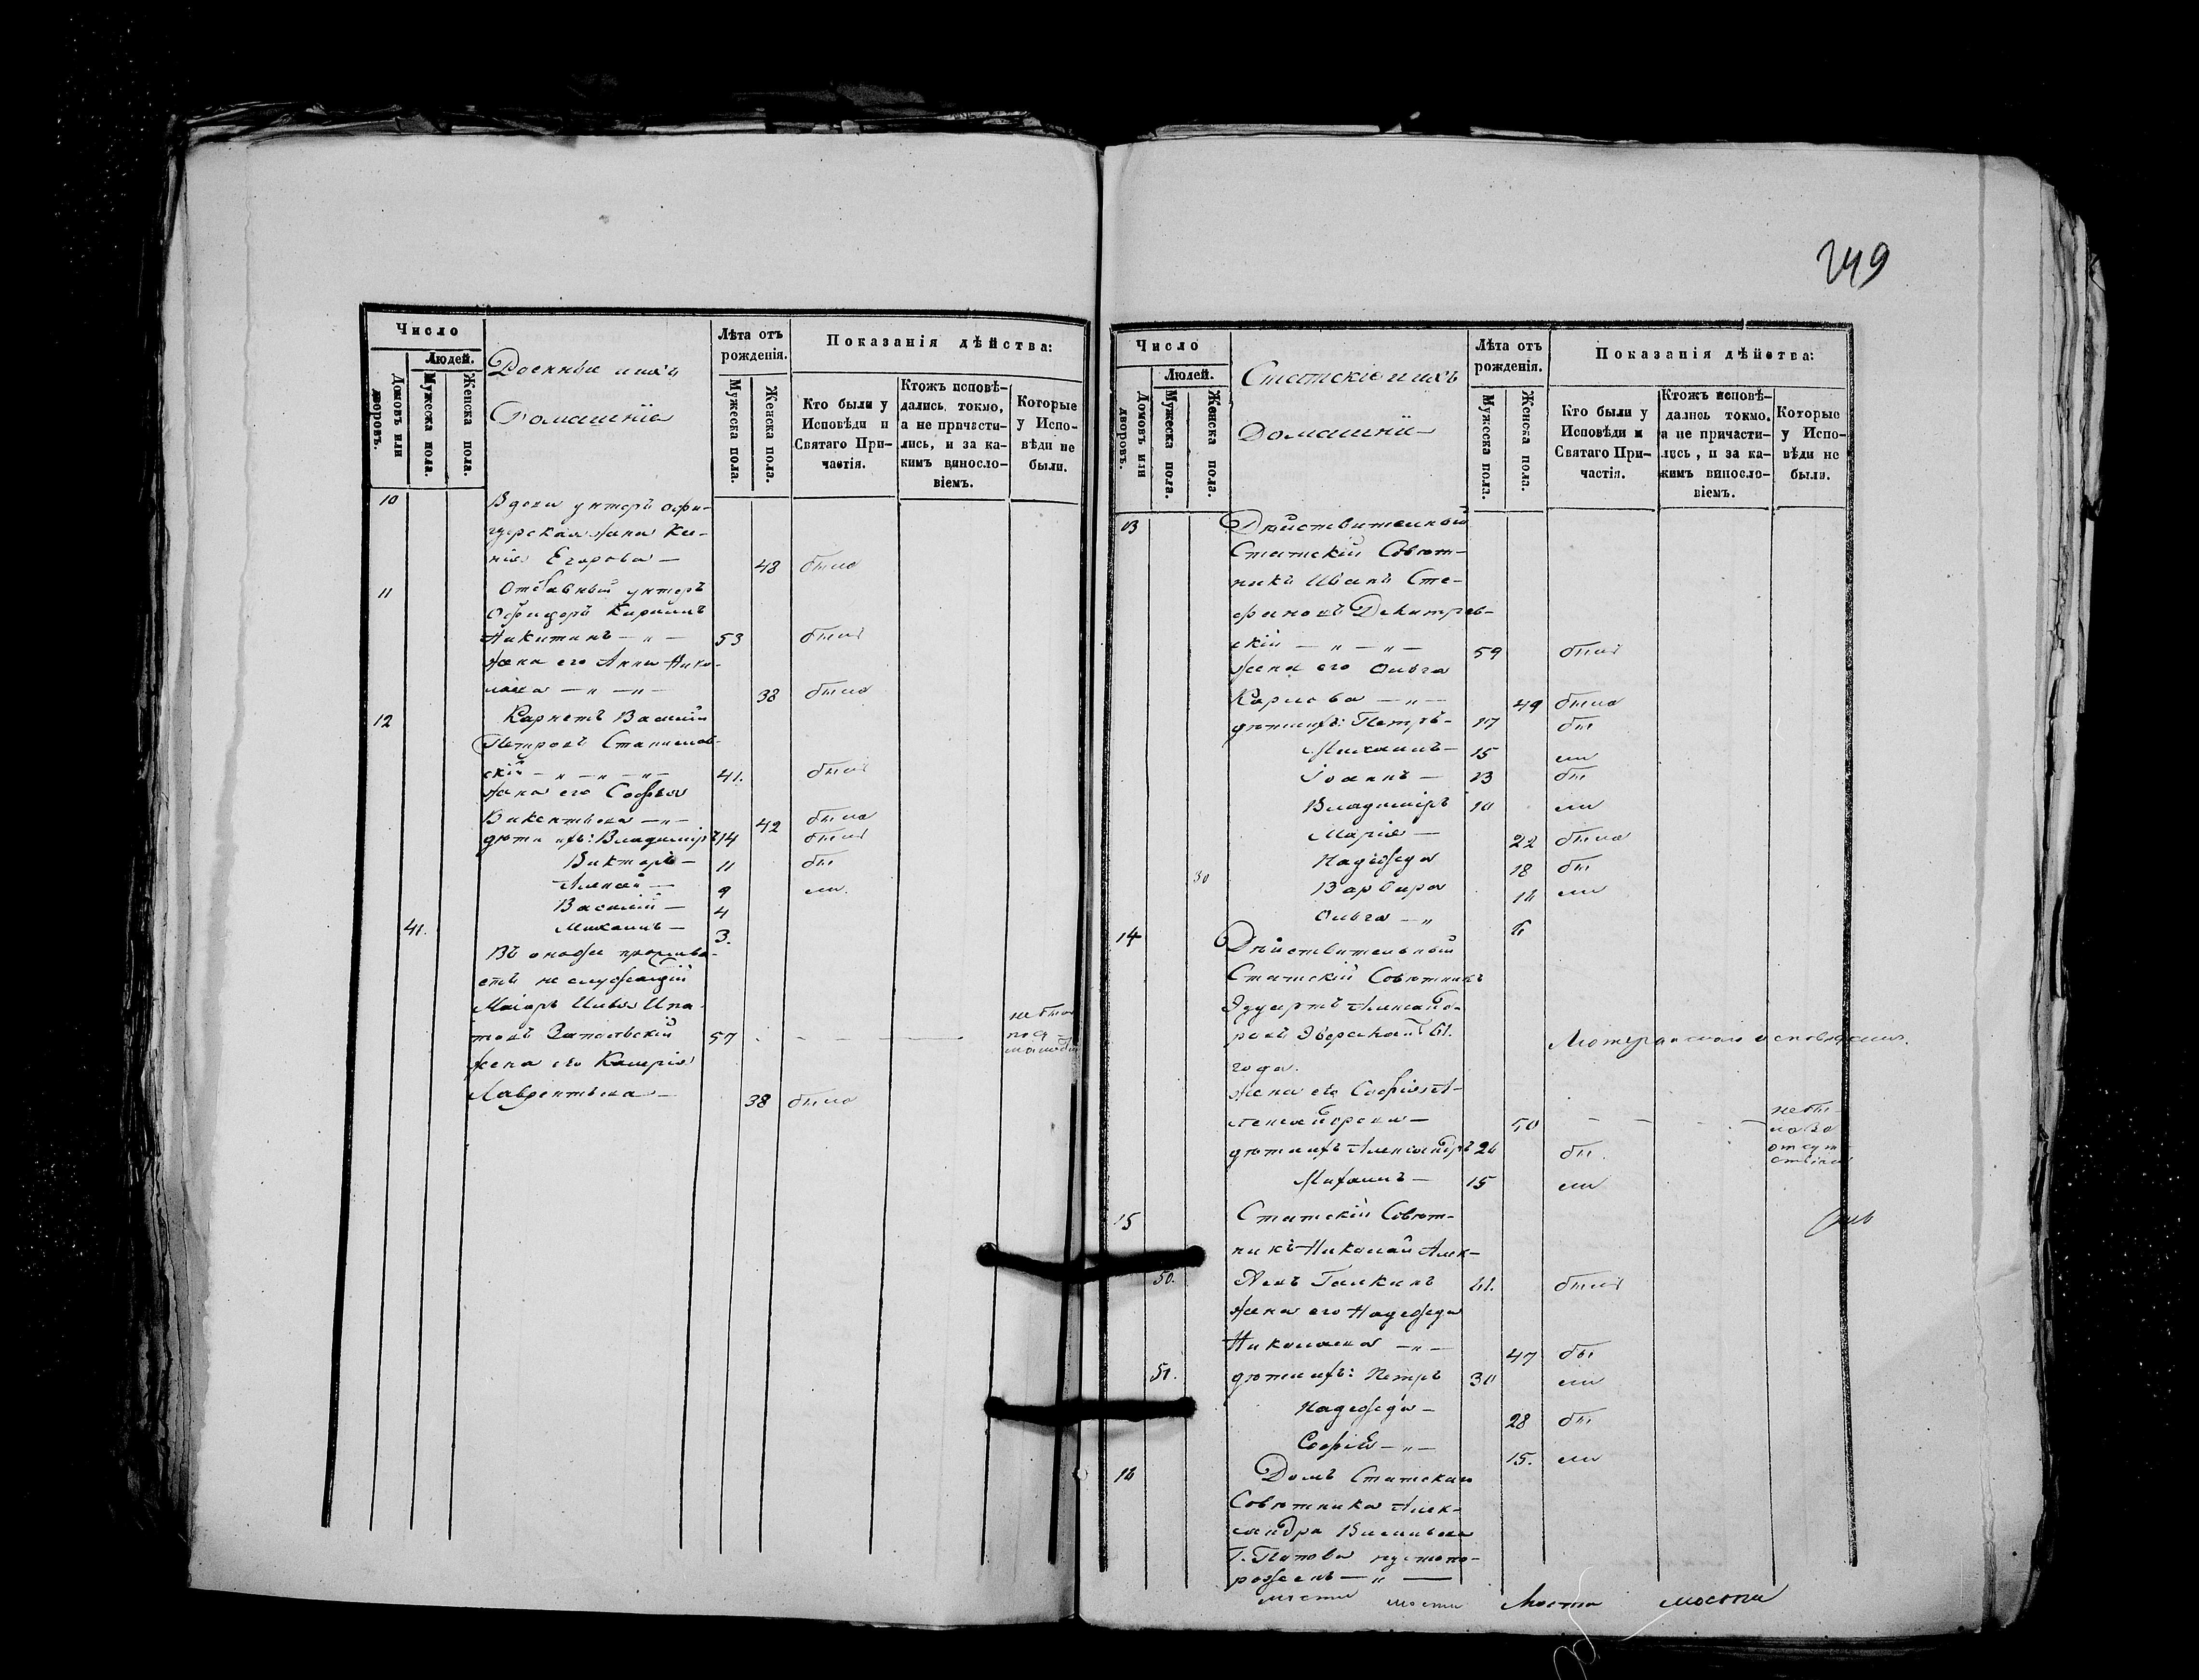 Число
Людей.
Домовъ или дворовъ.
Мужеска пола.
Женска пола.
Военные и ихъ
Домашніе
Лѣта отъ рожденія.
Мужеска пола.
Женска пола.
Показанія дѣйства:
Кто были у Исповѣди и Святаго Причастія.
Ктожъ исповѣдались токмо, а не причастились, и за какимъ винословіемъ.
Которые у Исповѣди не были.
10 Вдова унтеръ офи-
церская жена
Егорова — 48 была
11 Отставный унтеръ
Офицеръ Кирилъ
Никитинъ — „ — 53 былъ
жена его Анна Нико-
лаева — „ — „ — 38 была
12 Корнетъ Василій
Петровъ Станислав-
скій — „ — „ — „ — 41. былъ
жена его Софья
Викентьева — „ — 42 была
дѣти ихъ: Владиміръ 14 былъ
Викторъ — 11 бы
Алексѣй — 9 ли.
Василій — 4
41. Михаилъ — 3.
Въ ономже прожива-
етъ не служащій
Маіоръ Илья Игна-
товъ 57 не былъ
жена его Валерія
Лаврентьева — 38 была
249
Число
Людей.
Домовъ или дворовъ.
Мужеска пола.
Женска пола.
Статскіе и ихъ
Домашніе
Лѣта отъ рожденія.
Мужеска пола.
Женска пола.
Показанія дѣйства:
Кто были у Исповѣди и Святаго Причастія.
Ктожъ исповѣдались токмо, а не причастились, и за какимъ винословіемъ.
Которые у Исповѣди не были.
13 Дѣйствительный
Статскій Совѣт-
никъ Иванъ Сте-
фановъ Дмитрев-
скій — „ — „ — 59 былъ
жена его Ольга
Карлова — „ — 49 была
дѣти ихъ: Петръ — 17 бы
Михаилъ — 15 ли
Іоаннъ — 13 бы
Владиміръ 10 ли
Марія — 22 была
Надежда 18 бы
30 Варвара 16 ли
Ольга — „ 6
14 Дѣйствительный
Статскій Совѣтникъ
Эдуартъ Александ-
ровъ 61. Лютеранскаго исповѣданія.
года.
жена его Софія А-
лександрова — 50 — — — не бы-
ла за
отсут-
ствіемъ
дѣти ихъ Александръ 26 бы
Михаилъ — 15 ли
15 Статскій Совѣт-
никъ Николай Алек-
50. Галкинъ 61. былъ
жена его Надежда
Николаева — „ — 47 бы
51. дѣти ихъ: Петръ 30 ли
Надежда — 28 бы
Софія — „ — 15. ли
16 Домъ Статскаго
Совѣтника Алек-
сандра Васильева
Г. Попова пустопо-
рожденъ — „ —